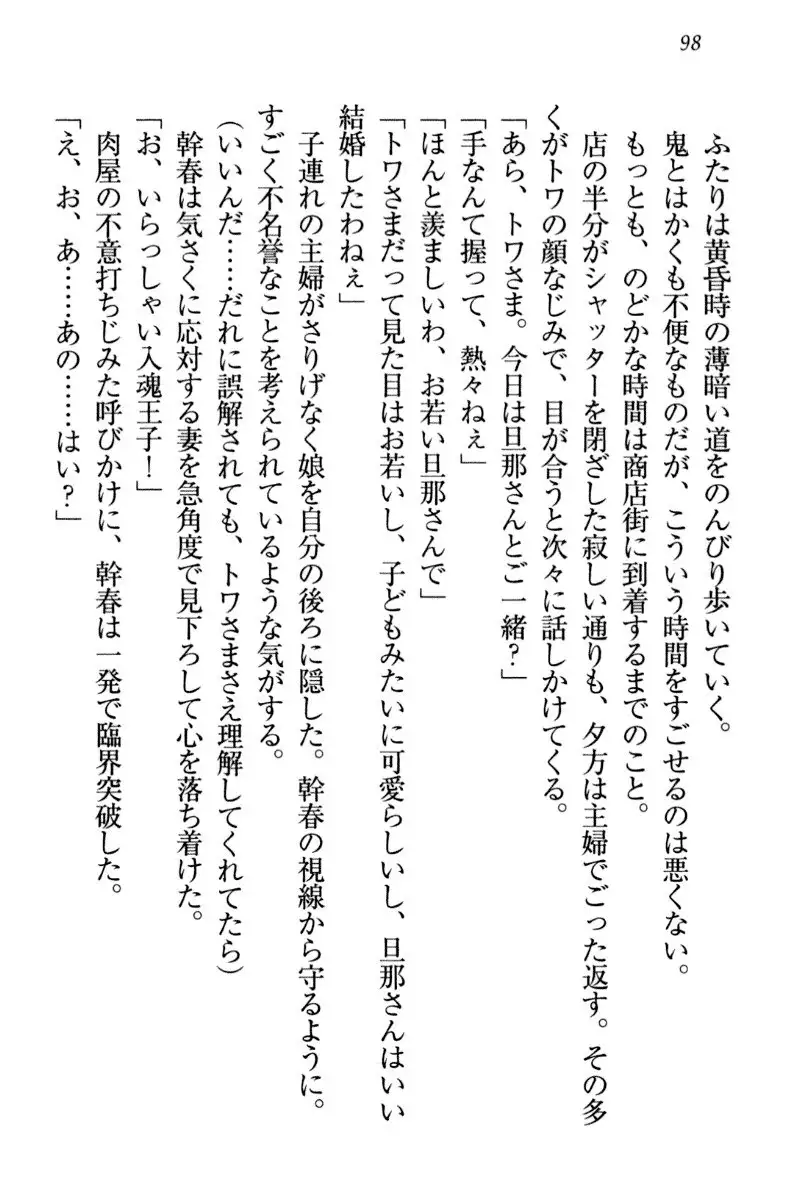 98
ふたりは黄昏時の薄暗い道をのんびり歩いていく。
鬼とはかくも不便なものだが、こういう時間をすごせるのは悪くない。
もっとも、のどかな時間は商店街に到着するまでのこと。
店の半分がシャッターを閉ざした寂しい通りも、夕方は主婦でごった返す。その多
くがトワの顔なじみで、目が合うと次々に話しかけてくる。
「あら、トワさま。今日は旦那さんとご一緒？」
「手なんて握って、熱々ねぇ」
「ほんと羨ましいわ、お若い旦那さんで」
「トワさまだって見た目はお若いし、子どもみたいに可愛らしいし、旦那さんはいい
結婚したわねぇ」
子連れの主婦がさりげなく娘を自分の後ろに隠した。幹春の視線から守るように。
すごく不名誉なことを考えられているような気がする。
（いいんだ……だれに誤解されても、トワさまさえ理解してくれてたら）
幹春は気さくに応対する妻を急角度で見下ろして心を落ち着けた。
「お、いらっしゃい入魂王子！」
肉屋の不意打ちじみた呼びかけに、幹春は一発で臨界突破した。
「え、お、あ……あの……はい？」